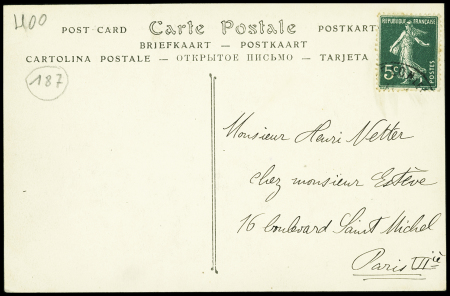 400
POST CARD Carte Postale POSTKARTE
BRIEFKAART — POSTKAART
CARTOLINA POSTALE — ОТКРЫТОЕ ПИСЬМО — TARJETA
187
REPUBLIQUE FRANÇAISE
5c
POSTES
Monsieur Henri Vetter
chez monsieur Estève
16 boulevard Saint Michel
Paris VIiè